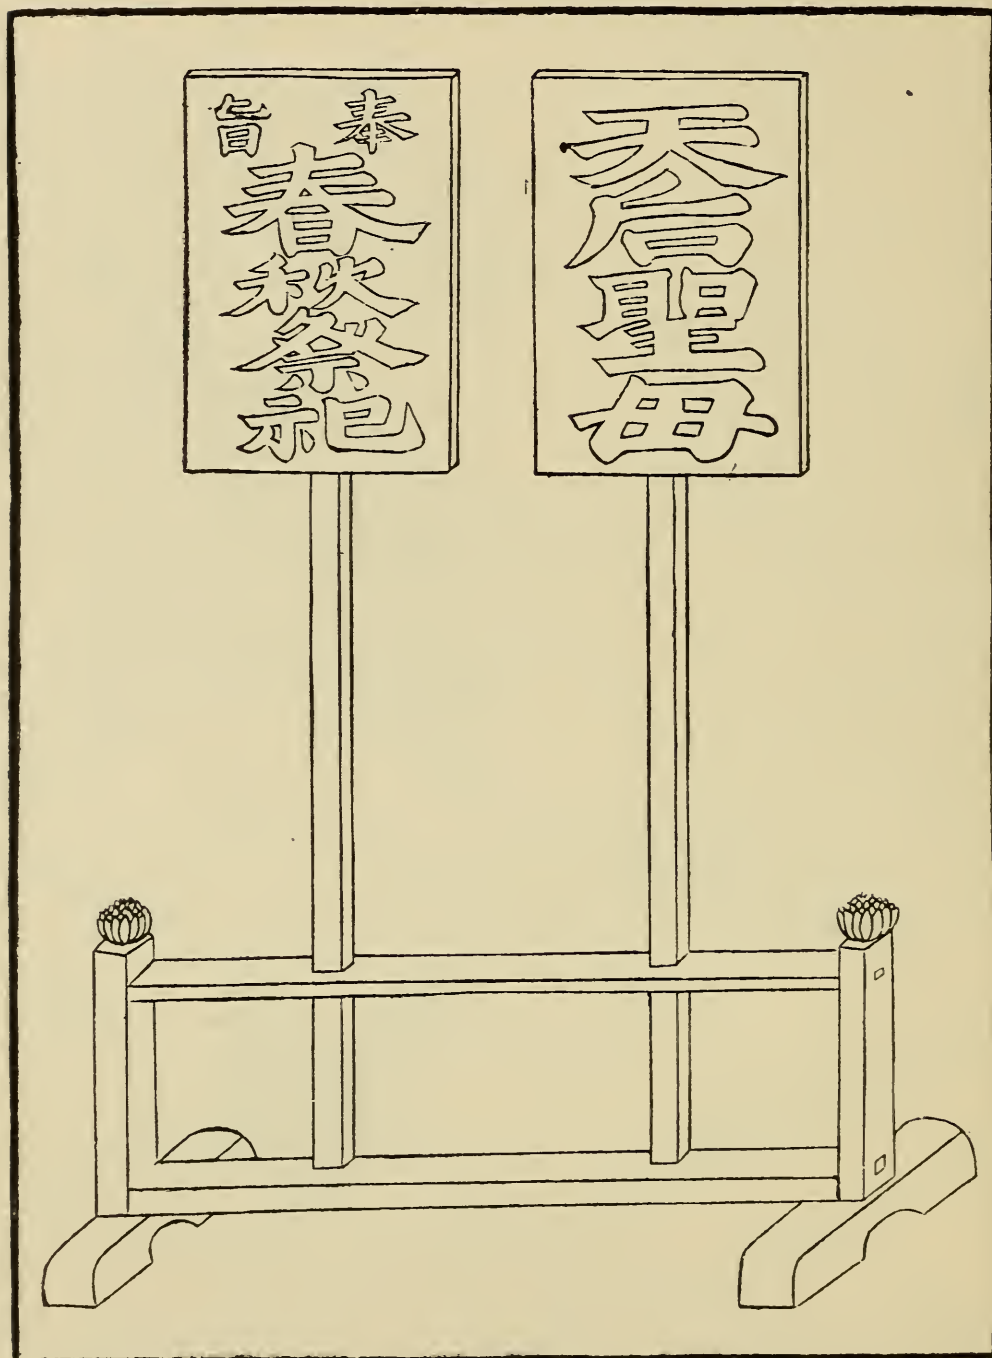 天后聖母
奉旨
春秋祭祀